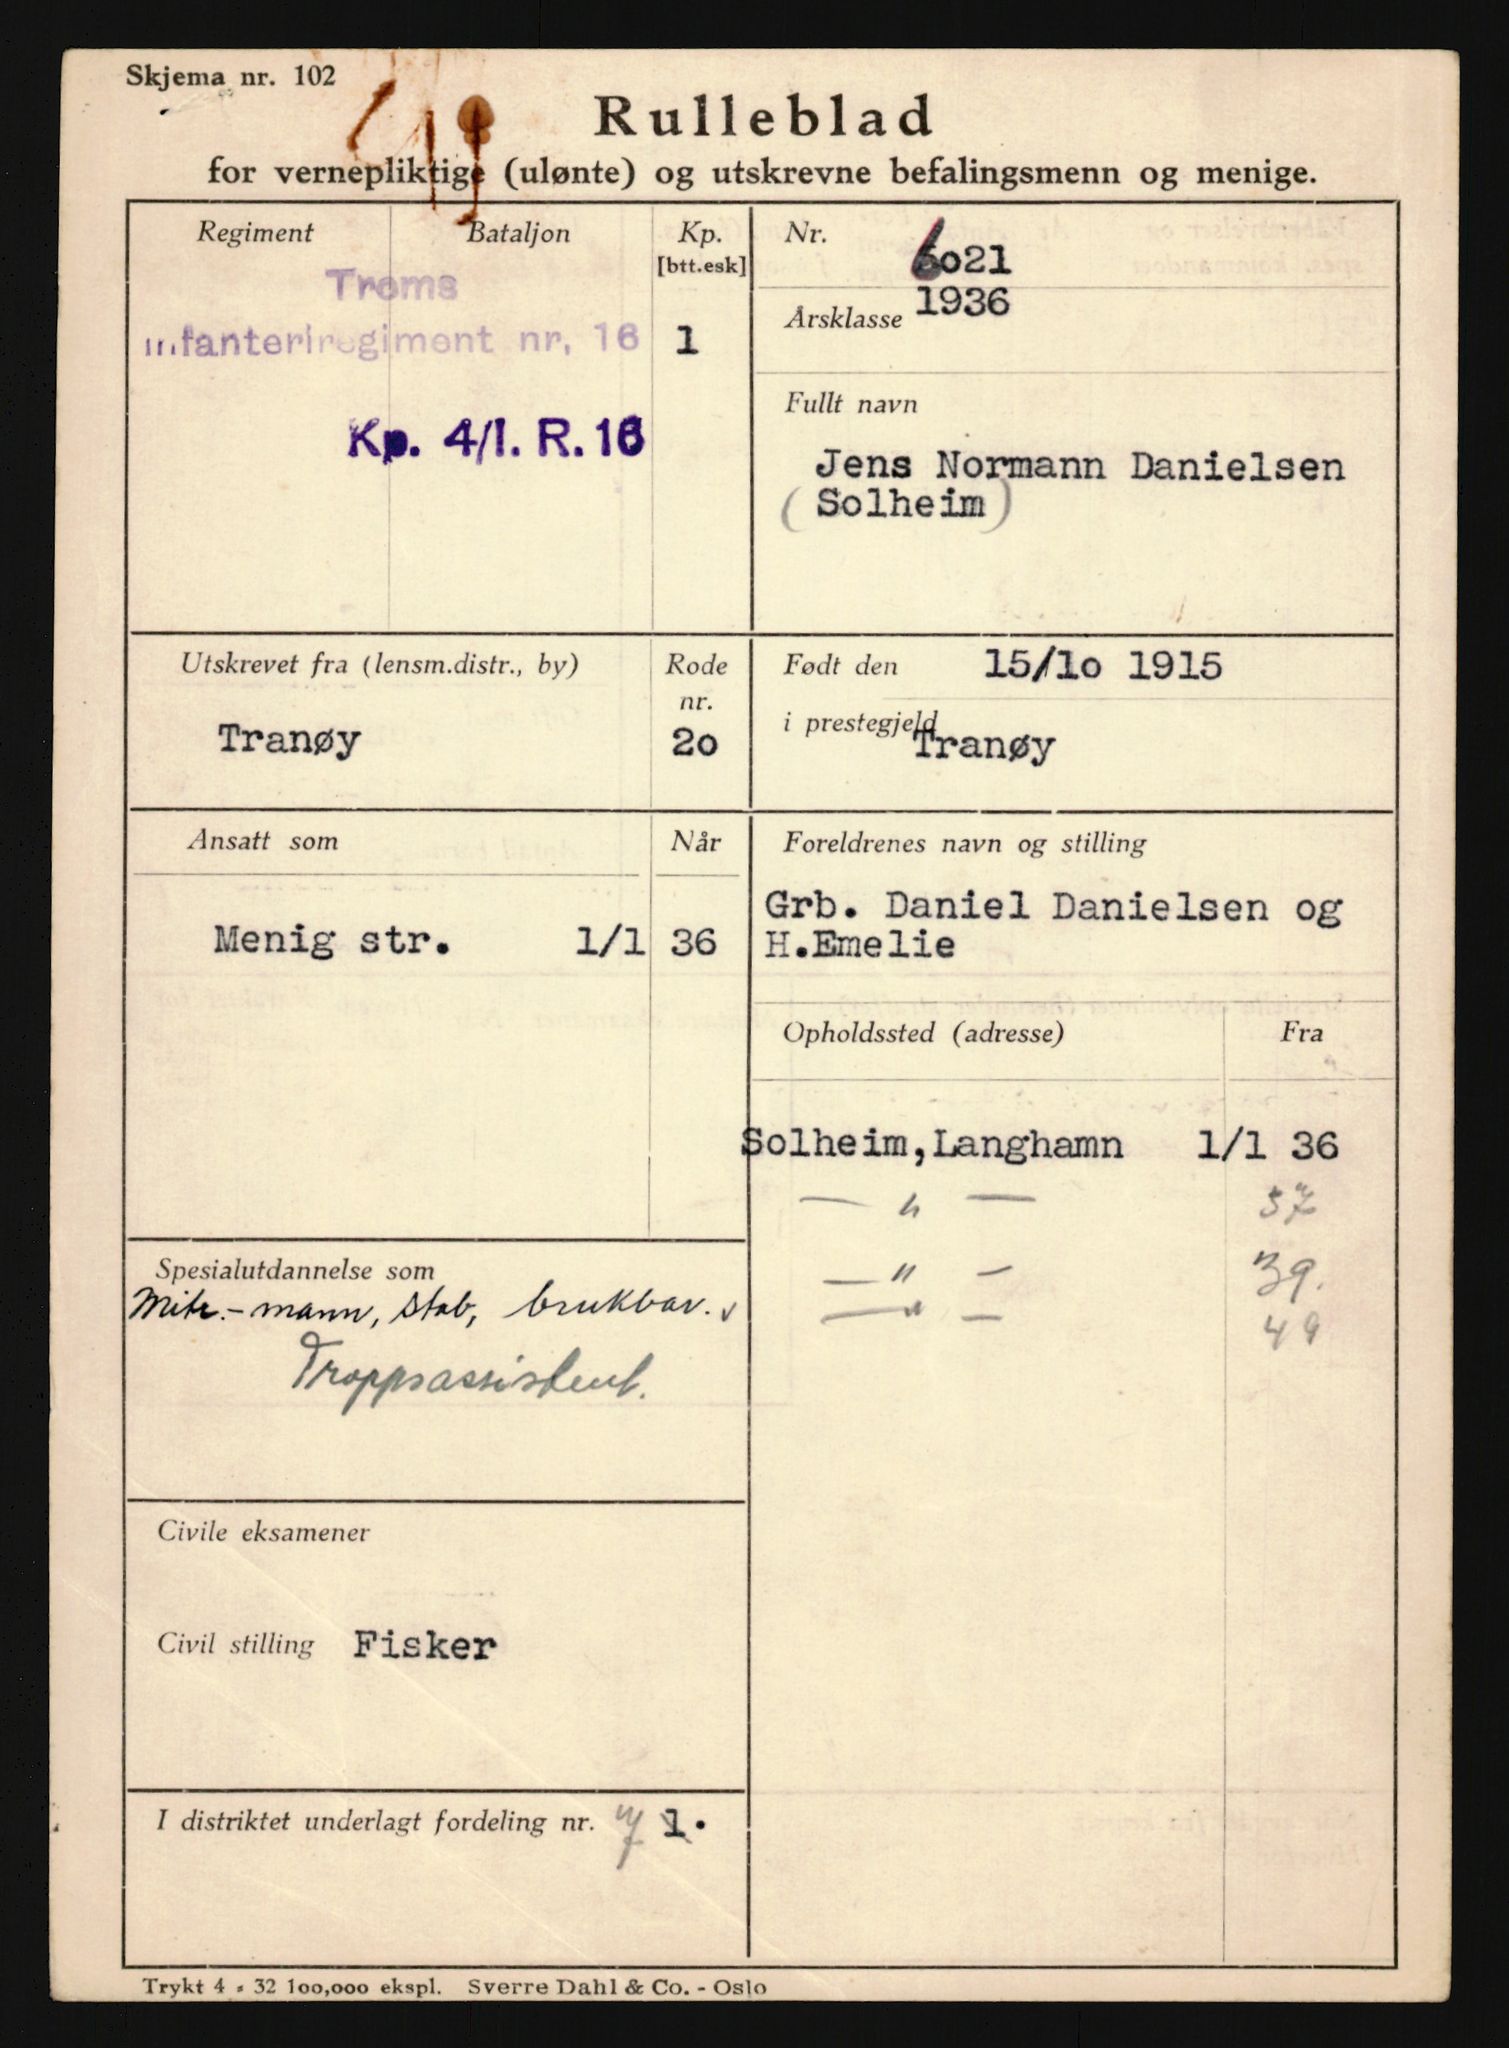 Skjema nr. 102
Rulleblad
for vernepliktige (ulønte) og utskrevne befalingsmenn og menige.
Regiment
Bataljon
Kp.
[btt.esk]
Troms
infanteriregiment nr. 16
1
Kp. 4/I. R. 16
Nr.
6021
Årsklasse
1936
Fullt navn
Jens Normann Danielsen
(Solheim)
Utskrevet fra (lensm.distr., by)
Rode
nr.
Tranøy
20
Født den
15/10 1915
i prestegjeld
Tranøy
Ansatt som
Når
Menig str. 1/1 36
Foreldrenes navn og stilling
Grb. Daniel Danielsen og
H.Emelie
Opholdssted (adresse)
Fra
Solheim,Langhamn 1/1 36
— " — 37
— " — 39.
— " — 49
Spesialutdannelse som
Mitr.-mann, stab, brukbar.
Troppsassistent.
Civile eksamener
Civil stilling Fisker
I distriktet underlagt fordeling nr. 1.
Trykt 4 - 32 100,000 ekspl. Sverre Dahl & Co. - Oslo